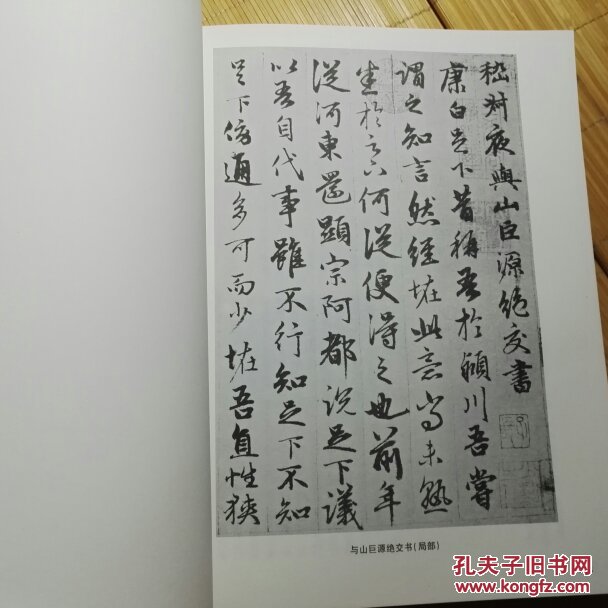 嵇叔夜與山巨源絕交書
康白足下昔稱吾於潁川吾嘗
謂之知言然經恠此意尚未熟
悉於足下何從便得之也前年
從河東還顯宗阿都說足下議
以吾自代事雖不行知足下不知
足下傍通多可而少恠吾直性狹
与山巨源绝交书（局部）
孔夫子旧书网
www.kongfz.com